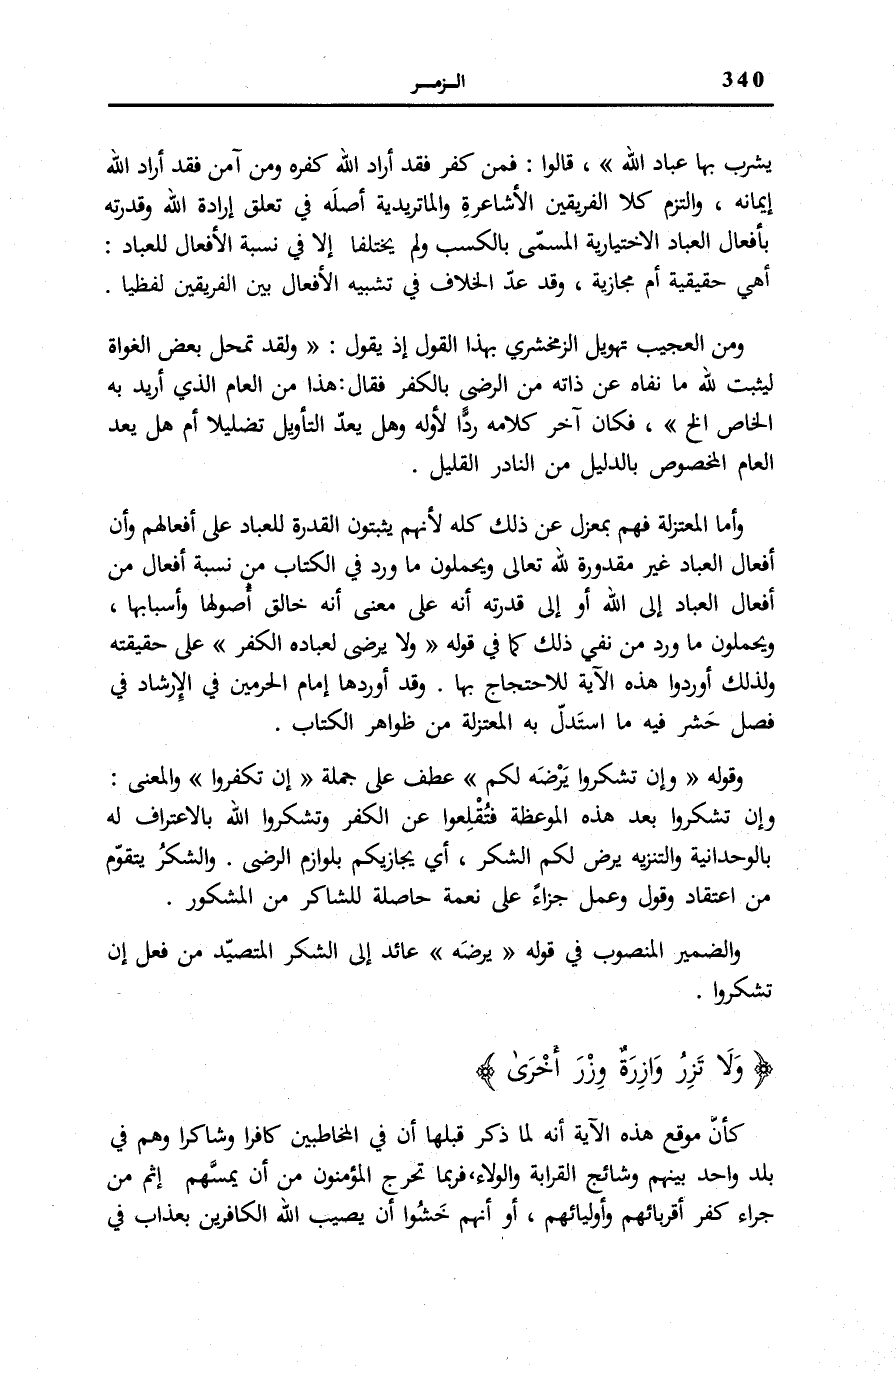 340
الـزمـر
يشرب بها عباد الله » ، قالوا : فمن كفر فقد أراد الله كفره ومن آمن فقد أراد الله
إيمانه ، والتزم كلا الفريقين الأشاعرةِ والماتريدية أصلَه في تعلق إرادة الله وقدرته
بأفعال العباد الاختيارية المسمّى بالكسب ولم يختلفا إلا في نسبة الأفعال للعباد :
أهي حقيقية أم مجازية ، وقد عدّ الخلاف في تشبيه الأفعال بين الفريقين لفظيا .
ومن العجيب تهويل الزمخشري بهذا القول إذ يقول : « ولقد تمحل بعض الغواة
ليثبت لله ما نفاه عن ذاته من الرضى بالكفر فقال:هذا من العام الذي أريد به
الخاص الخ » ، فكان آخر كلامه ردًّا لأوله وهل يعدّ التأويل تضليلا أم هل يعد
العام المخصوص بالدليل من النادر القليل .
وأما المعتزلة فهم بمعزل عن ذلك كله لأنهم يثبتون القدرة للعباد على أفعالهم وأن
أفعال العباد غير مقدورة لله تعالى ويحملون ما ورد في الكتاب من نسبة أفعال من
أفعال العباد إلى الله أو إلى قدرته أنه على معنى أنه خالق أُصولها وأسبابها ،
ويحملون ما ورد من نفي ذلك كما في قوله « ولا يرضى لعباده الكفر » على حقيقته
ولذلك أوردوا هذه الآية للاحتجاج بها . وقد أوردها إمام الحرمين في الإرشاد في
فصل حَشر فيه ما استَدلّ به المعتزلة من ظواهر الكتاب .
وقوله « وإن تشكروا يَرْضَه لكم » عطف على جملة « إن تكفروا » والمعنى :
وإن تشكروا بعد هذه الموعظة فتُقْلِعوا عن الكفر وتشكروا الله بالاعتراف له
بالوحدانية والتنزيه يرض لكم الشكر ، أي يجازيكم بلوازم الرضى . والشكرُ يتقوّم
من اعتقاد وقول وعمل جزاءً على نعمة حاصلة للشاكر من المشكور .
والضمير المنصوب في قوله « يرضَه » عائد إلى الشكر المتصيّد من فعل إن
تشكروا .
﴿ وَلَا تَزِرُ وَازِرَةٌ وِزْرَ أُخْرَىٰ ﴾
كأنّ موقع هذه الآية أنه لما ذكر قبلها أن في المخاطبين كافرا وشاكرا وهم في
بلد واحد بينهم وشائج القرابة والولاء،فربما تحرج المؤمنون من أن يمسَّهم إثم من
جراء كفر أقربائهم وأوليائهم ، أو أنهم خَشُوا أن يصيب الله الكافرين بعذاب في